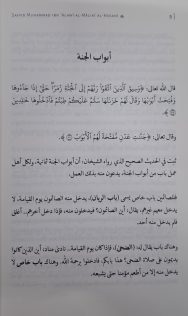 SAYYID MUHAMMAD IBN ALAWI AL-MALIKI AL-HASANI
أبواب الجنة
قال الله تعالى: ﴿وَسِيقَ الَّذِينَ اتَّقَوْا رَبَّهُمْ إِلَى الْجَنَّةِ زُمَرًا حَتَّىٰ إِذَا جَاءُوهَا
وَفُتِحَتْ أَبْوَابُهَا وَقَالَ لَهُمْ خَزَنَتُهَا سَلَامٌ عَلَيْكُمْ طِبْتُمْ فَادْخُلُوهَا خَالِدِينَ﴾
وقال تعالى: ﴿جَنَّاتِ عَدْنٍ مُفَتَّحَةً لَهُمُ الْأَبْوَابُ﴾
ثبت في الحديث الصحيح الذي رواه الشيخان، أن أبواب الجنة ثمانية، ولكل أهل
عمل باب من أبواب الجنة، يدعون منه بذلك العمل.
فللصائمين باب خاص يسمى (باب الريان)، يدخل منه الصائمون يوم القيامة، لا
يدخل معهم غيرهم، يقال: أين الصائمون؟ فيدخلون منه، فإذا دخل آخرهم، أغلق
فلم يدخل منه أحد.
وهناك باب يقال له: (الضحى)، فإذا كان يوم القيامة، نادى مناد: أين الذين كانوا
يديمون على صلاة الضحى؟ هذا بابكم، فادخلوا برحمة الله. وهناك باب خاص لا
يدخل منه إلا من أطعم مؤمنا حتى يشبعه.